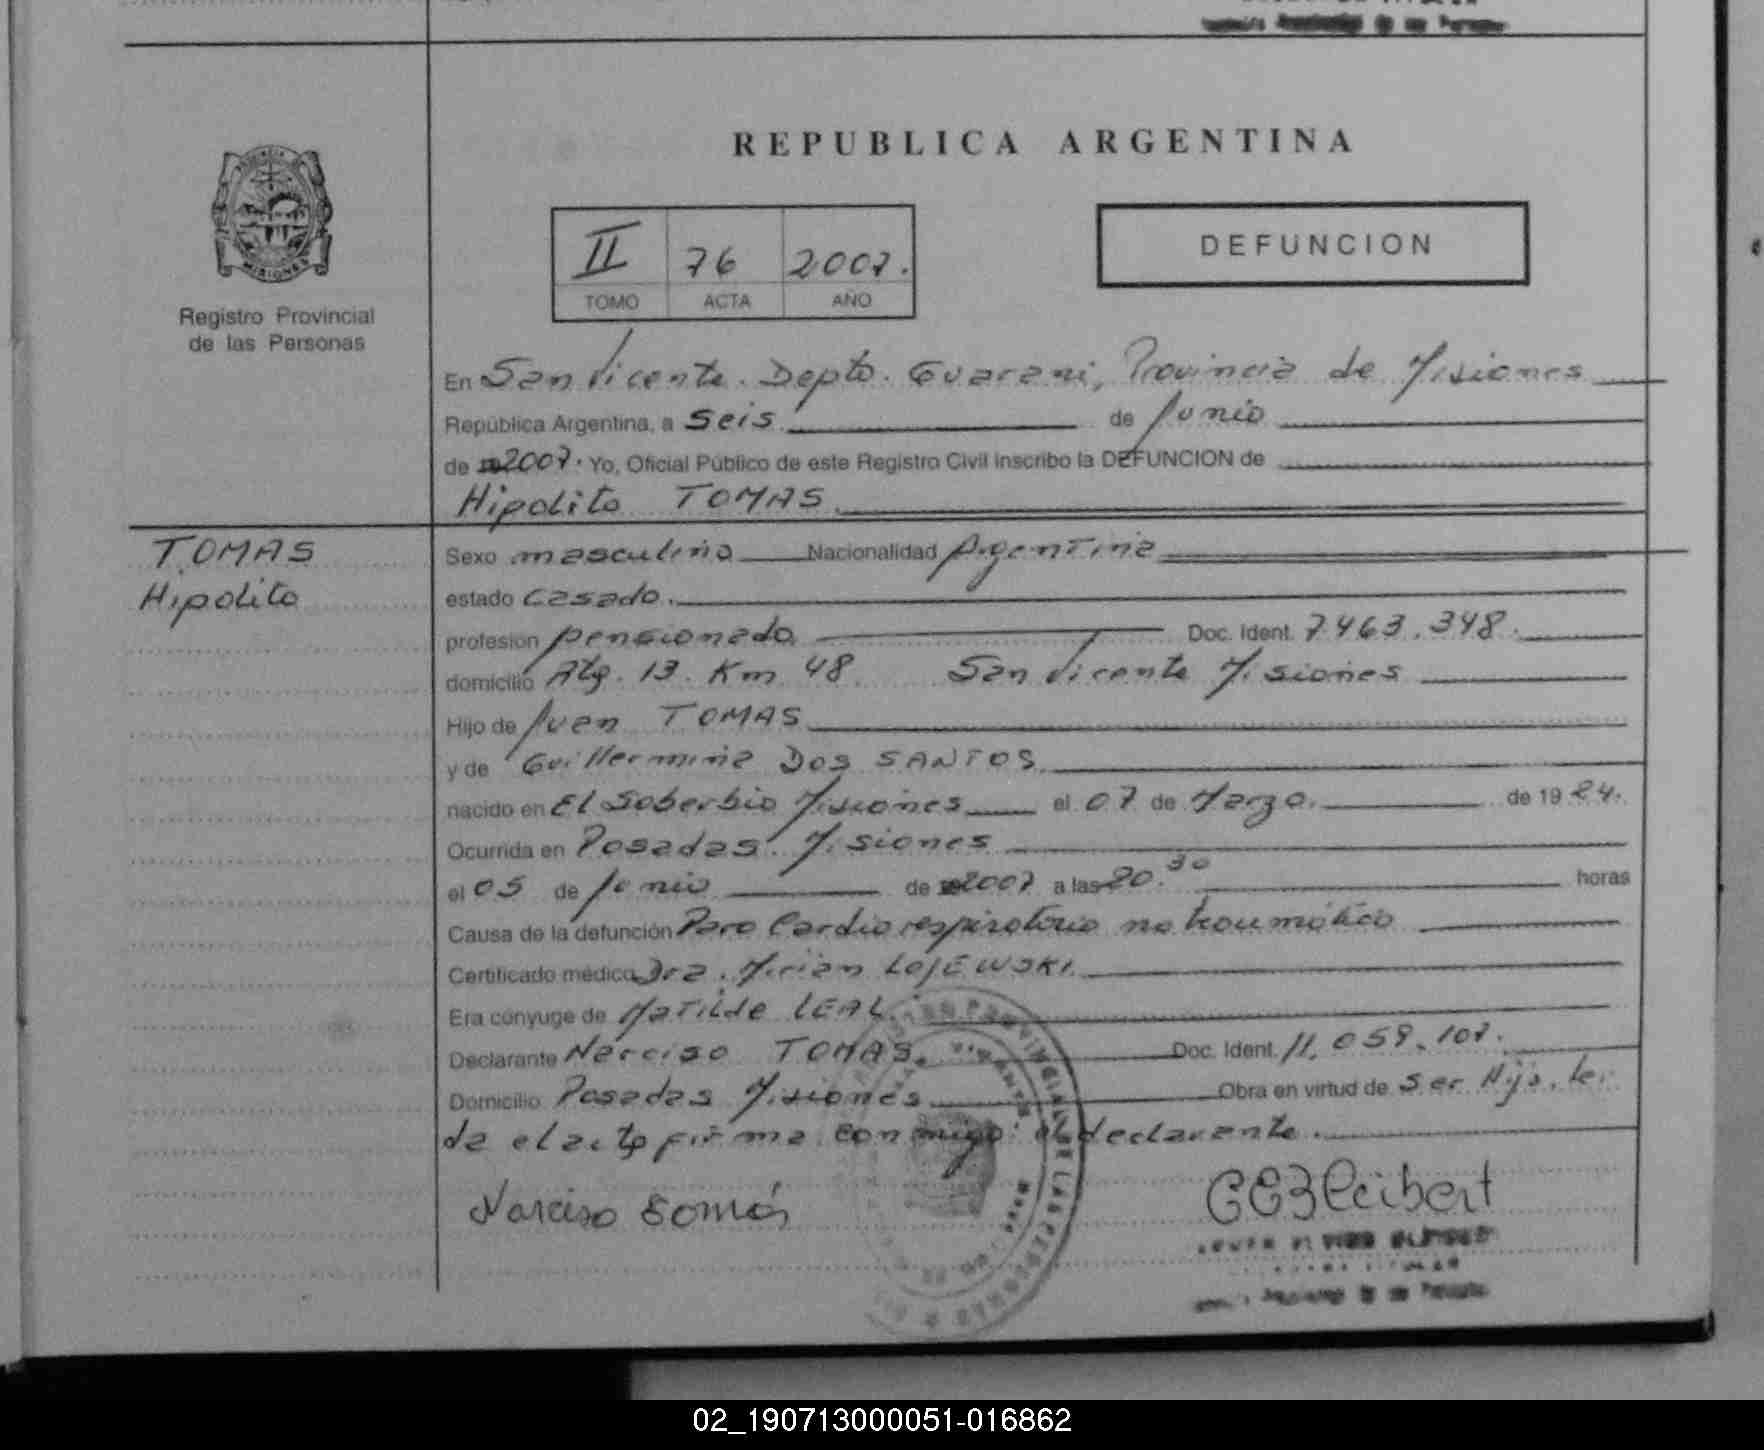 REPUBLICA ARGENTINA
PROVINCIA DE
MISIONES
Registro Provincial
de las Personas
II 76 2007.
TOMO ACTA AÑO
DEFUNCION
En San Vicente. Depto. Guarani, Provincia de Misiones
República Argentina, a seis de Junio
de 2007. Yo, Oficial Público de este Registro Civil inscribo la DEFUNCION de
Hipolito TOMAS
TOMAS
Hipolito
Sexo masculino Nacionalidad Argentina
estado casado.
profesión pensionado Doc. Ident. 7463.348.
domicilio Rtg. 13. Km 48 San Vicente Misiones
Hijo de Juan TOMAS
y de Guillermina Dos SANTOS
nacido en El Soberbio Misiones el 07 de Marzo. de 19 24.
Ocurrida en Posadas. Misiones
el 05 de Junio de 2007 a las 20.30 horas
Causa de la defunción Paro Cardio respiratorio no traumático
Certificado médico Dra. Mirian LOJEWSKI.
Era cónyuge de Matilde LEAL.
Declarante Narciso TOMAS. Doc. Ident. 11.059.107.
Domicilio Posadas Misiones Obra en virtud de ser Hijo. lei
da el acta firma conmigo el declarante.
Narciso Tomás
02_190713000051-016862